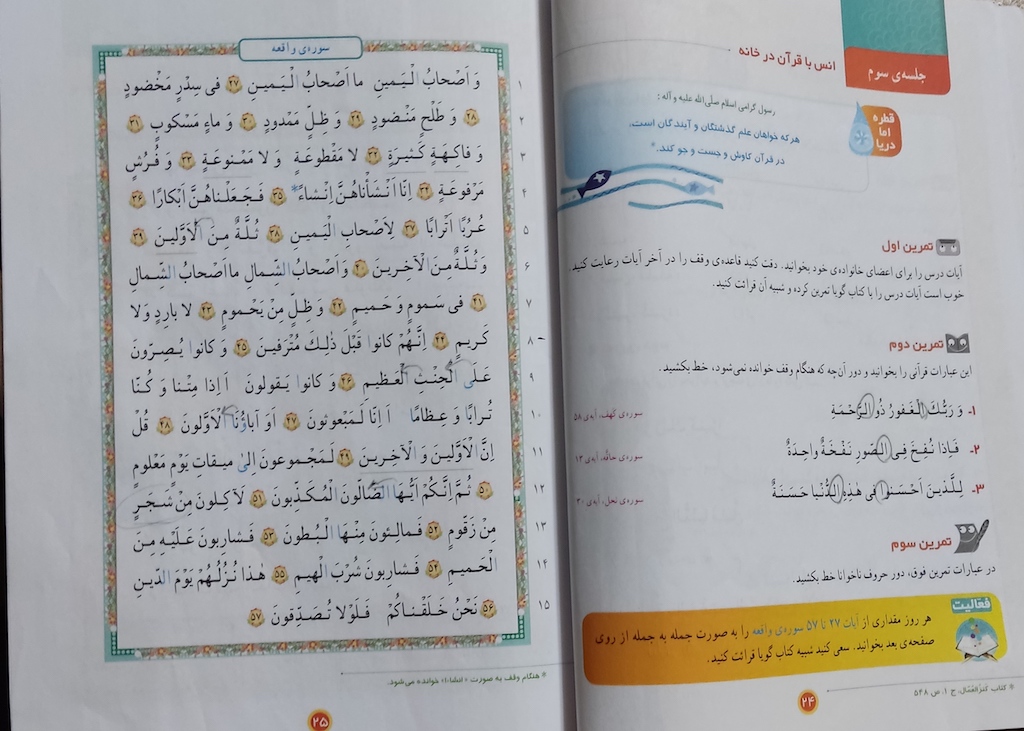 جلسه‌ی سوم
انس با قرآن در خانه
قطره
اما
دریا
رسول گرامی اسلام صلی‌الله علیه و آله :
هر که خواهان علم گذشتگان و آیندگان است،
در قرآن کاوش و جست و جو کند.*
تمرین اول
آیات درس را برای اعضای خانواده‌ی خود بخوانید. دقت کنید قاعده‌ی وقف را در آخر آیات رعایت کنید.
خوب است آیات درس را با کتاب گویا تمرین کرده و شبیه آن قرائت کنید.
تمرین دوم
این عبارات قرآنی را بخوانید و دور آن‌چه که هنگام وقف خوانده نمی‌شود، خط بکشید.
۱- وَ رَبُّكَ الْغَفورُ ذُو الرَّحْمَةِ سوره‌ی کهف، آیه‌ی ۵۸
۲- فَاِذا نُفِخَ فِی الصّورِ نَفْخَةٌ واحِدَةٌ سوره‌ی حاقّه، آیه‌ی ۱۳
۳- لِلَّذینَ اَحْسَنوا فی هٰذِهِ الدُّنْیا حَسَنَةٌ سوره‌ی نحل، آیه‌ی ۳۰
تمرین سوم
در عبارات تمرین فوق، دور حروف ناخوانا خط بکشید.
فعالیت
هر روز مقداری از آیات ۲۷ تا ۵۷ سوره‌ی واقعه را به صورت جمله به جمله از روی
صفحه‌ی بعد بخوانید. سعی کنید شبیه کتاب گویا قرائت کنید.
* کتاب کنزالعمّال، ج ۱، ص ۵۴۸
۲۴
سوره‌ی واقعه
۱ وَ اَصْحابُ الْیَمینِ ما اَصْحابُ الْیَمینِ ۲۷ فی سِدْرٍ مَخْضودٍ
۲ ۲۸ وَ طَلْحٍ مَنْضودٍ ۲۹ وَ ظِلٍّ مَمْدودٍ ۳۰ وَ ماءٍ مَسْكوبٍ ۳۱
۳ وَ فاكِهَةٍ كَثیرَةٍ ۳۲ لا مَقْطوعَةٍ وَ لا مَمْنوعَةٍ ۳۳ وَ فُرُشٍ
۴ مَرْفوعَةٍ ۳۴ اِنّا اَنْشَأْناهُنَّ اِنْشاءً* ۳۵ فَجَعَلْناهُنَّ اَبْكارًا ۳۶
۵ عُرُبًا اَتْرابًا ۳۷ لِاَصْحابِ الْیَمینِ ۳۸ ثُلَّةٌ مِنَ الْاَوَّلینَ ۳۹
۶ وَ ثُلَّةٌ مِنَ الْآخِرینَ ۴۰ وَ اَصْحابُ الشِّمالِ ما اَصْحابُ الشِّمالِ
۷ ۴۱ فی سَمومٍ وَ حَمیمٍ ۴۲ وَ ظِلٍّ مِنْ یَحْمومٍ ۴۳ لا بارِدٍ وَ لا
۸ كَریمٍ ۴۴ اِنَّهُمْ كانوا قَبْلَ ذٰلِكَ مُتْرَفینَ ۴۵ وَ كانوا یُصِرّونَ
۹ عَلَی الْحِنْثِ الْعَظیمِ ۴۶ وَ كانوا یَقولونَ اَ اِذا مِتْنا وَ كُنّا
۱۰ تُرابًا وَ عِظامًا اَ اِنّا لَمَبْعوثونَ ۴۷ اَوَ آباؤُنَا الْاَوَّلونَ ۴۸ قُلْ
۱۱ اِنَّ الْاَوَّلینَ وَ الْآخِرینَ ۴۹ لَمَجْموعونَ اِلیٰ میقاتِ یَوْمٍ مَعْلومٍ
۱۲ ۵۰ ثُمَّ اِنَّكُمْ اَیُّهَا الضّالّونَ الْمُكَذِّبونَ ۵۱ لَآكِلونَ مِنْ شَجَرٍ
۱۳ مِنْ زَقّومٍ ۵۲ فَمالِئونَ مِنْهَا الْبُطونَ ۵۳ فَشارِبونَ عَلَیْهِ مِنَ
۱۴ الْحَمیمِ ۵۴ فَشارِبونَ شُرْبَ الْهیمِ ۵۵ هٰذا نُزُلُهُمْ یَوْمَ الدّینِ
۱۵ ۵۶ نَحْنُ خَلَقْناكُمْ فَلَوْلا تُصَدِّقونَ ۵۷
* هنگام وقف به صورت «انشاءا» خوانده می‌شود.
۲۵